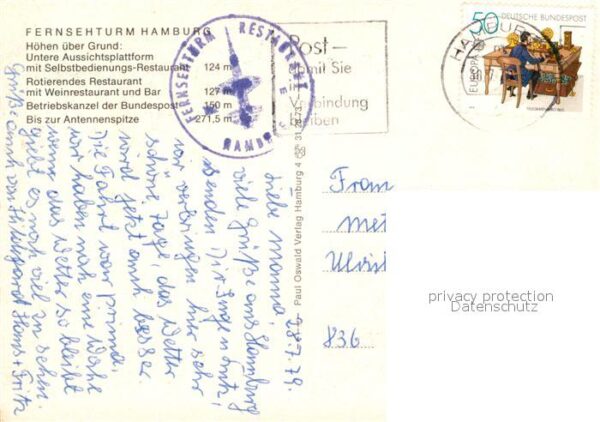 FERNSEHTURM HAMBURG
Höhen über Grund:
Untere Aussichtsplattform
mit Selbstbedienungs-Restaurant 124 m
Rotierendes Restaurant
mit Weinrestaurant und Bar 127 m
Betriebskanzel der Bundespost 150 m
Bis zur Antennenspitze 271,5 m
FERNSEHTURM RESTAURANT
HAMBURG
Post –
damit Sie
in
Verbindung
bleiben
50 DEUTSCHE BUNDESPOST
EUROPA
HAMBURG
Paul Oswald Verlag Hamburg 4
23.7.79.
Liebe Mama!
Viele Grüße aus Hamburg
senden Dir Inge u.
wir verbringen hier sehr
schöne Tage, das Wetter
wird jetzt auch besser.
Die Fahrt war prima,
wir haben noch eine Woche
wenn das Wetter so bleibt
gibt es noch viel zu sehen.
Grüße auch von Hildegard Hans + Fritz
Frau
Ulrich
836
privacy protection
Datenschutz